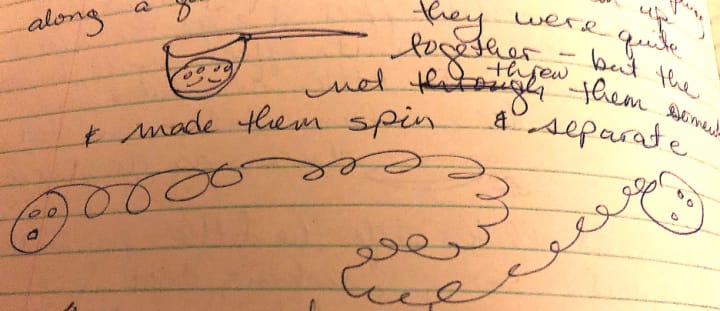 along a
they were quite
together - but the
net threw them
& made them spin & separate